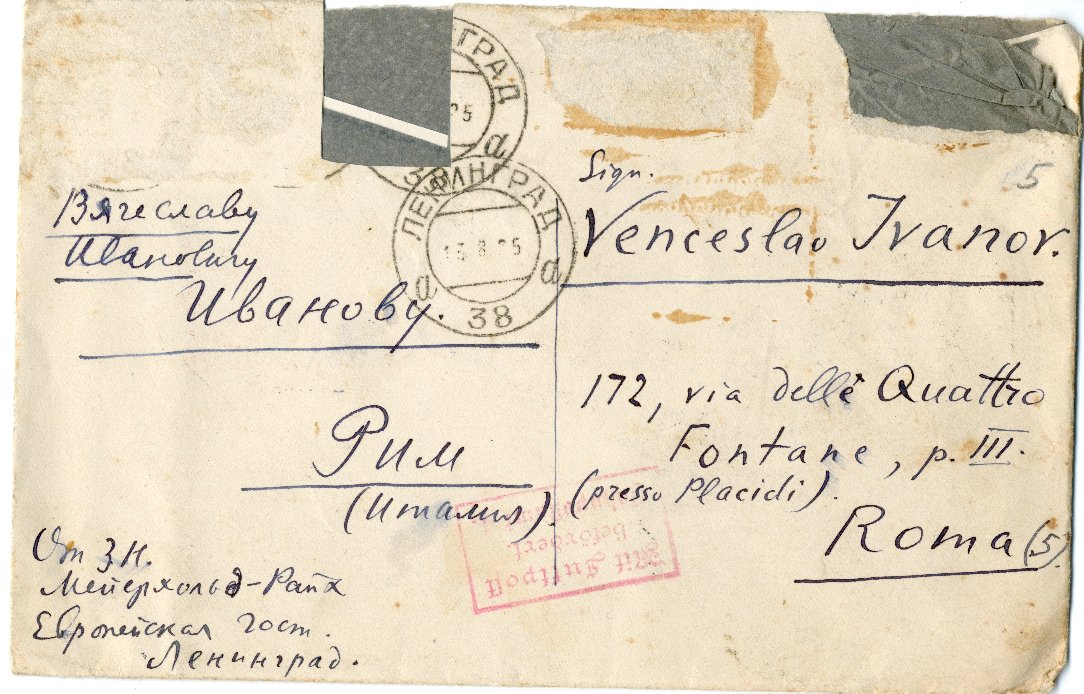 Вячеславу
Ивановичу
Иванову.
Рим
(Италия).
От З.Н.
Мейерхольд-Райх
Европейская гост.
Ленинград.
Sign.
Venceslao Ivanov.
172, via delle Quattro
Fontane, p. III.
(presso Placidi).
Roma (5)
5
ГРАД
25
а
ЛЕНИНГРАД
15 8 25
а а
38
Mit Luftpost
befördert